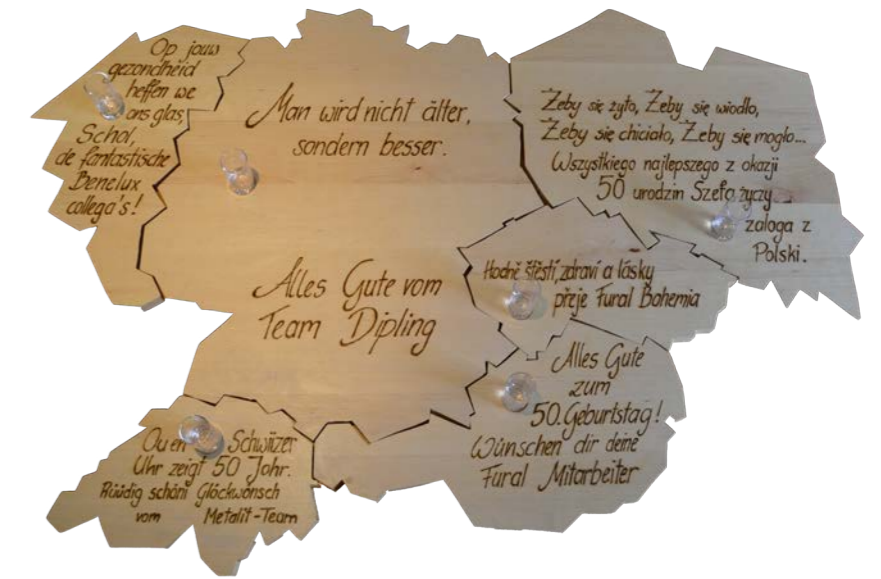 Op jouw
gezondheid
heffen we
ons glas,
Schol,
de fantastische
Benelux
collega's!
Man wird nicht älter,
sondern besser.
Alles Gute vom
Team Dipling
Żeby się żyło, Żeby się wiodło,
Żeby się chiciało, Żeby się mogło...
Wszystkiego najlepszego z okazji
50 urodzin Szefa życzy
załoga z
Polski.
Hodně štěstí, zdraví a lásky
přeje Fural Bohemia
Alles Gute
zum
50. Geburtstag!
Wünschen dir deine
Fural Mitarbeiter
Schwiizer
Uhr zeigt 50 Johr.
Rüüdig schöni Glöckwonsch
vom Metalit-Team